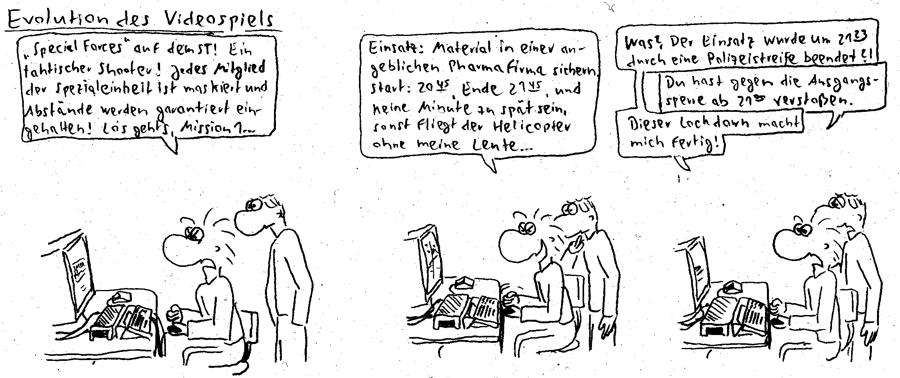 Evolution des Videospiels
„Special Forces" auf dem ST! Ein
taktischer Shooter! Jedes Mitglied
der Spezialeinheit ist maskiert und
Abstände werden garantiert ein-
gehalten! Los gehts, Mission 1...
Einsatz: Material in einer an-
geblichen Pharmafirma sichern,
start: 20 45, Ende 21 45, und
keine Minute zu spät sein,
sonst fliegt der Helicopter
ohne meine Leute...
Was?, Der Einsatz wurde um 21 23
durch eine Polizeistreife beendet?!
Du hast gegen die Ausgangs-
sperre ab 21 00 verstoßen.
Dieser Lockdown macht
mich fertig!